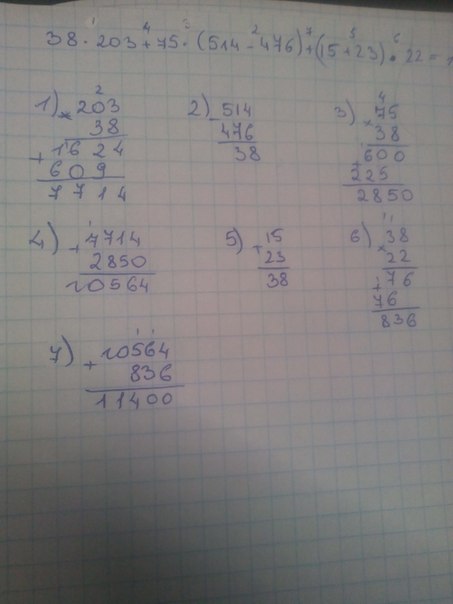 38 · 203 + 75 · (514 - 476) + (15 + 23) · 22 =
1) × 203
38
+ 1624
609
7714
2) - 514
476
38
3) × 75
38
+ 600
225
2850
4) + 7714
2850
10564
5) + 15
23
38
6) × 38
22
+ 76
76
836
7) + 10564
836
11400